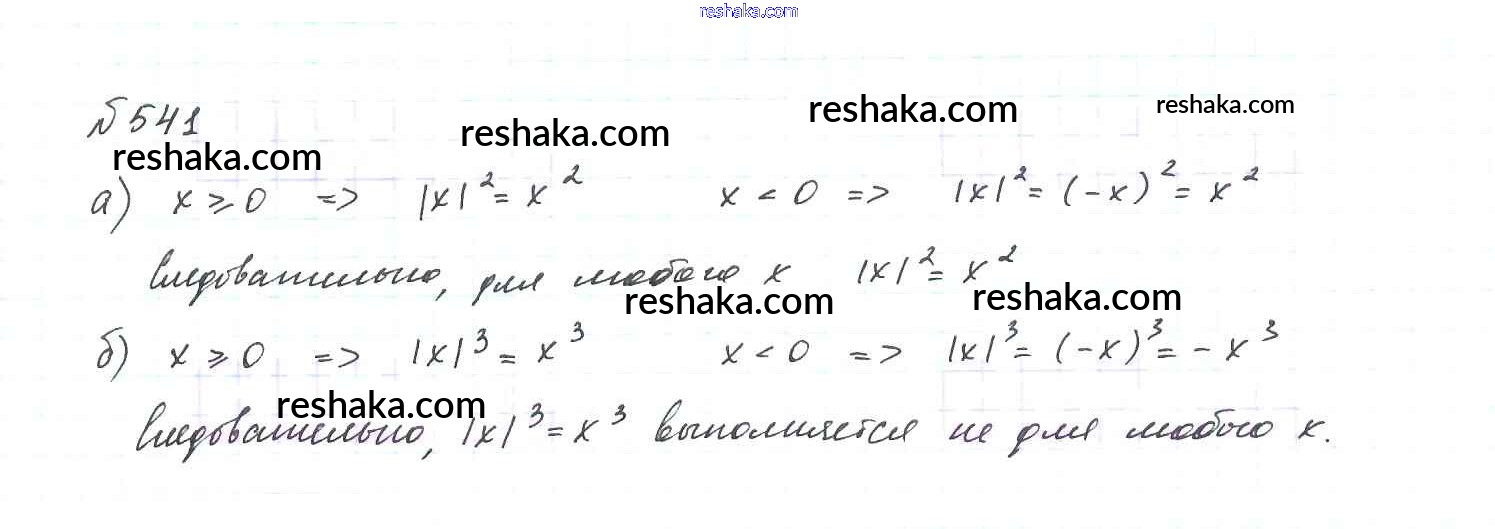 reshaka.com
№ 541
reshaka.com reshaka.com reshaka.com reshaka.com
а) x ⩾ 0 => |x|² = x² x < 0 => |x|² = (-x)² = x²
Следовательно, для любого x |x|² = x²
reshaka.com reshaka.com
б) x ⩾ 0 => |x|³ = x³ x < 0 => |x|³ = (-x)³ = -x³
reshaka.com
Следовательно, |x|³ = x³ выполняется не для любого x.